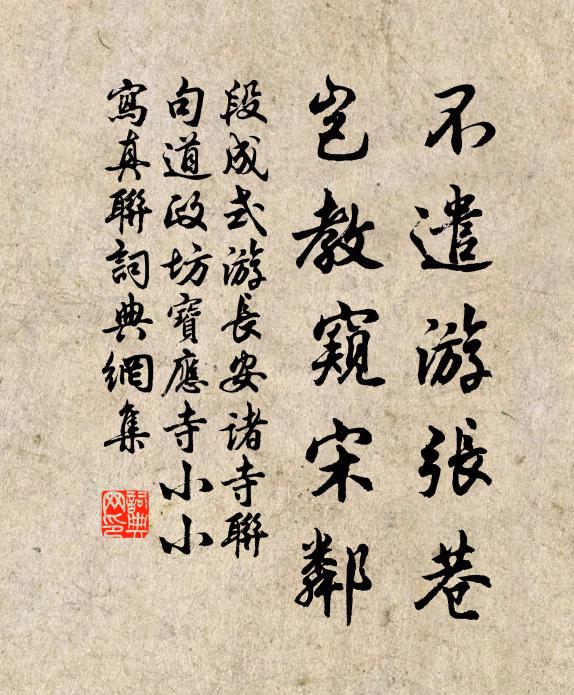 不遣游張巷
豈教窺宋鄰
段成式游長安诸寺聯
句道政坊寶應寺小小
寫真聯詞典網集
詞典网印